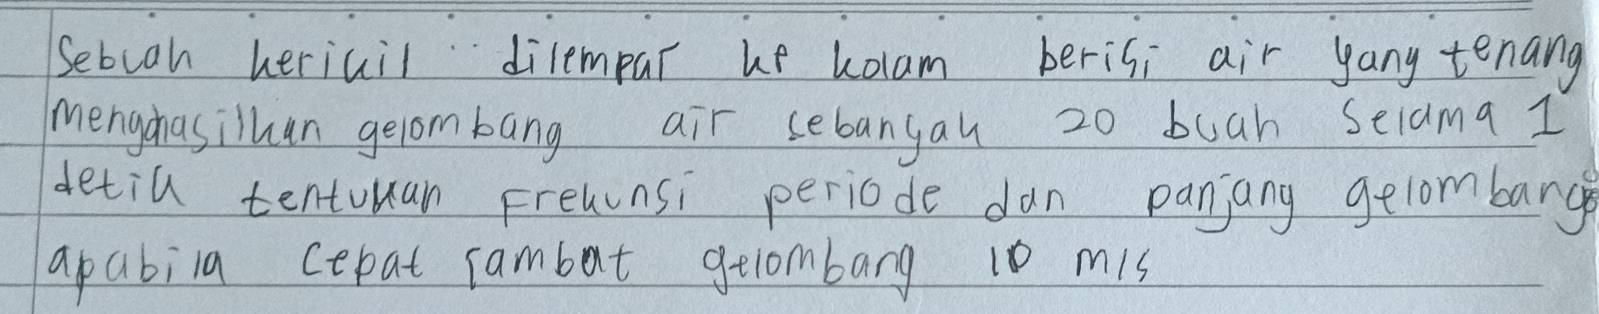 Sebuah kerikil dilempar ke kolam berisi air yang tenang
menghasilkan gelombang air sebanyak 20 buah selama 1
detik tentukan Frekunsi periode dan panjang gelombang
apabila cepat rambat gelombang 10 m/s